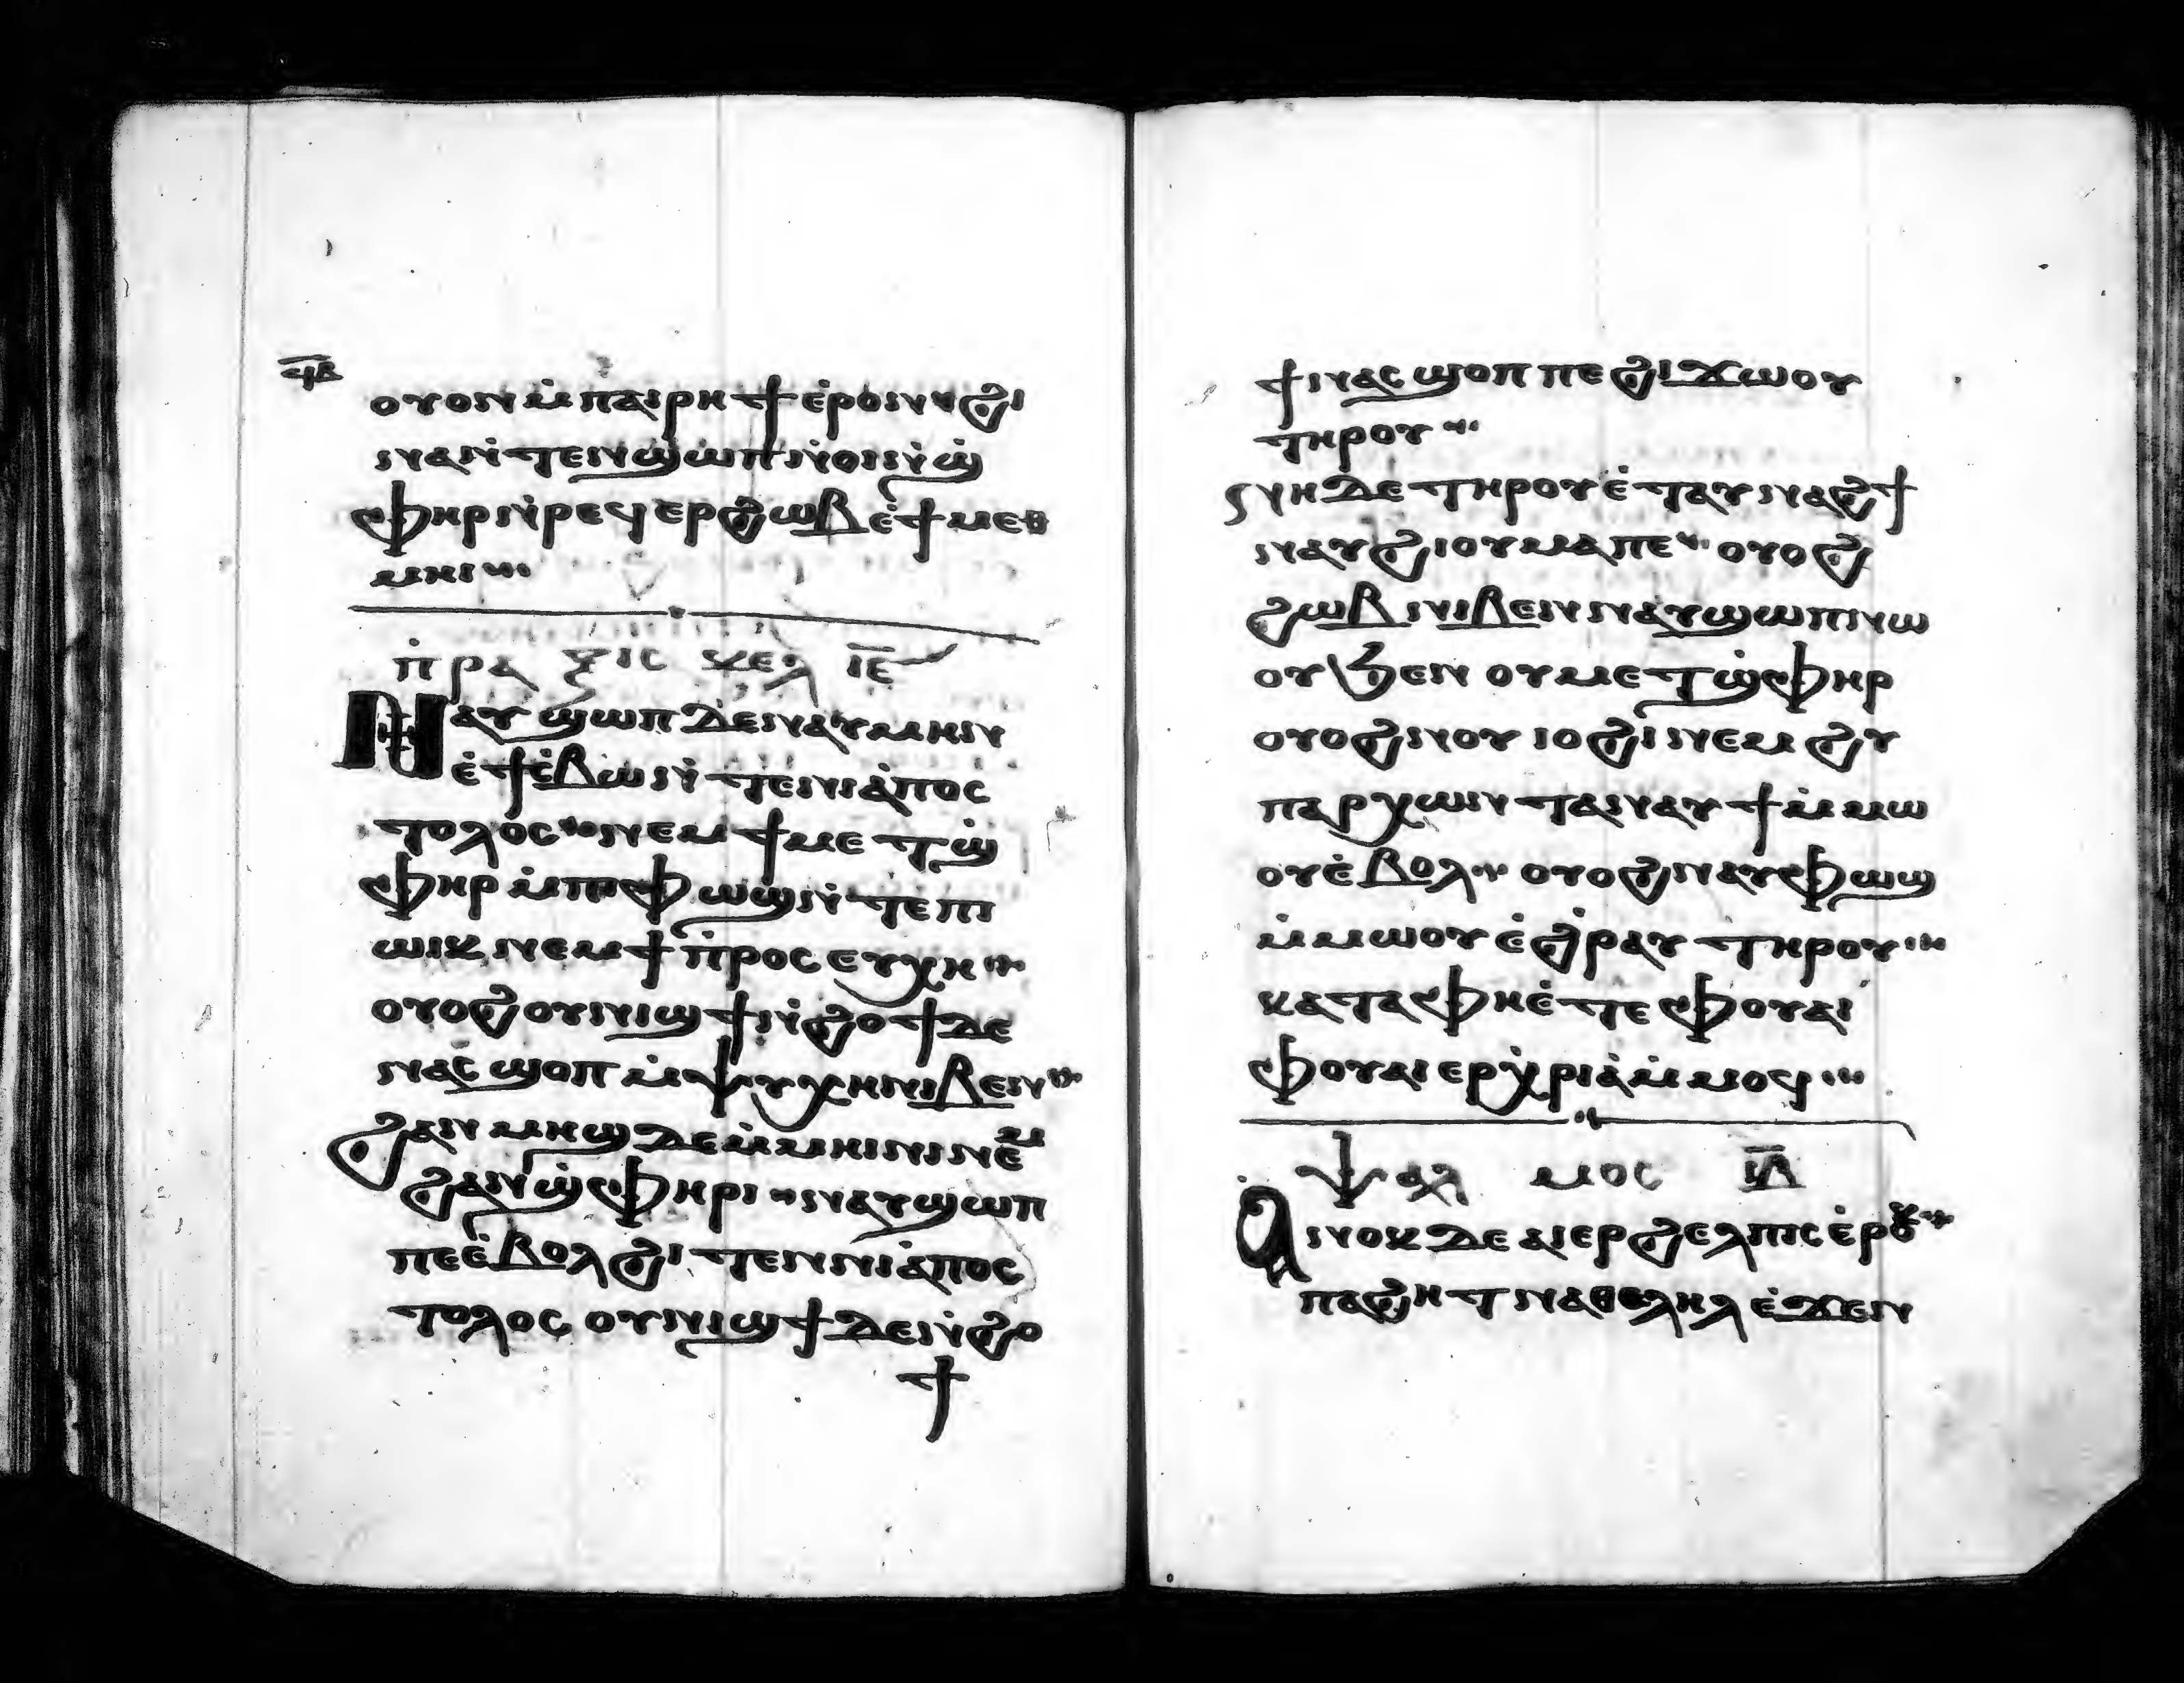 ϥⲃ̅
ⲟⲩⲟⲛ ⲙ̇ⲡⲁⲓⲣⲏϯ ⲉ̇ⲣⲟⲛ ϩⲓ
ⲛⲁ ⲛ̇ⲧⲉⲛϣⲱⲡⲓ ⲛ̇ⲟⲓ ⲛ̇ϣ̇
ⲫⲏⲣ ⲛ̇ⲣⲉϥⲉⲣϩⲱⲃ ⲉ̇ϯⲙⲉⲑ
ⲙⲏⲓ
ⲡ̇ⲣⲁⲝⲓⲥ ⲕⲉⲗ ⲓⲉ̅
Ⲛⲁⲩϣⲱⲡ ⲇⲉ ⲛⲁⲩⲙⲏⲛ
ⲉ̇ϯⲥ̇ⲃⲱ ⲛ̇ⲧⲉⲛⲓⲁ̇ⲡⲟⲥ
ⲧⲟⲗⲟⲥ ⲛⲉⲙ ϯⲙⲉⲧϣ̇
ⲫⲏⲣ ⲙ̇ⲡⲓⲫⲱϣ ⲛ̇ⲧⲉ ⲡⲓ
ⲱⲓⲕ ⲛⲉⲙ ϯⲡ̇ⲣⲟⲥⲉⲩⲭⲏ
ⲟⲩⲟϩ ⲟⲩⲛⲓϣϯ ⲛ̇ϩⲟϯ ⲇⲉ
ⲛⲁⲥϣⲟⲡ ⲙ̇ⲯⲩⲭⲏ ⲛⲓⲃⲉⲛ
ϩⲁⲛⲙⲏϣ ⲇⲉ ⲙ̇ⲙⲏⲓⲛⲓ ⲛⲉⲙ
ϩⲁⲛϣ̇ⲫⲏⲣⲓ ⲛⲁⲩϣⲱⲡ
ⲡⲉ ⲉ̇ⲃⲟⲗ ϩⲓⲧⲉⲛ ⲛⲓⲁ̇ⲡⲟⲥ
ⲧⲟⲗⲟⲥ ⲟⲩⲛⲓϣϯ ⲇⲉ ⲛ̇ϩⲟ
ϯ
ϯ ⲛⲁⲥϣⲟⲡ ⲡⲉ ϩⲓϫⲱⲟⲩ
ⲧⲏⲣⲟⲩ
ⲛⲏ ⲇⲉ ⲧⲏⲣⲟⲩ ⲉ̇ⲧⲁⲩⲛⲁϩϯ
ⲛⲁⲩϩⲓⲟⲩⲙⲁ ⲡⲉ ⲟⲩⲟϩ
ϩⲱⲃ ⲛⲓⲃⲉⲛ ⲛⲁⲩϣⲱⲡ ⲛⲱ
ⲟⲩ ϧⲉⲛ ⲟⲩⲙⲉⲧϣ̇ⲫⲏⲣ
ⲟⲩⲟϩ ⲛⲟⲩⲓⲟϩⲓ ⲛⲉⲙ ϩⲩ
ⲡⲁⲣⲭⲱⲛⲧⲁ ⲛⲁⲩϯ ⲙ̇ⲙⲱ
ⲟⲩ ⲉ̇ⲃⲟⲗ ⲟⲩⲟϩ ⲛⲁⲩⲫⲱϣ
ⲙ̇ⲙⲱⲟⲩ ⲉ̇ϩⲣⲁⲩ ⲧⲏⲣⲟⲩ
ⲕⲁⲧⲁ ⲫⲏ ⲉ̇ⲧⲉ ⲫⲟⲩⲁⲓ
ⲫⲟⲩⲁⲓ ⲉⲣⲭ̇ⲣⲓⲁ̇ ⲙ̇ⲙⲟϥ
ⲯⲁⲗⲙⲟⲥ ⲓⲃ̅
Ⲁⲛⲟⲕ ⲇⲉ ⲁⲓⲉⲣϩⲉⲗⲡⲓⲥ ⲉ̇ⲣⲟⲕ
ⲡⲁϩⲏⲧ ⲛⲁⲑⲉⲗⲏⲗ ⲉ̇ϫⲉⲛ